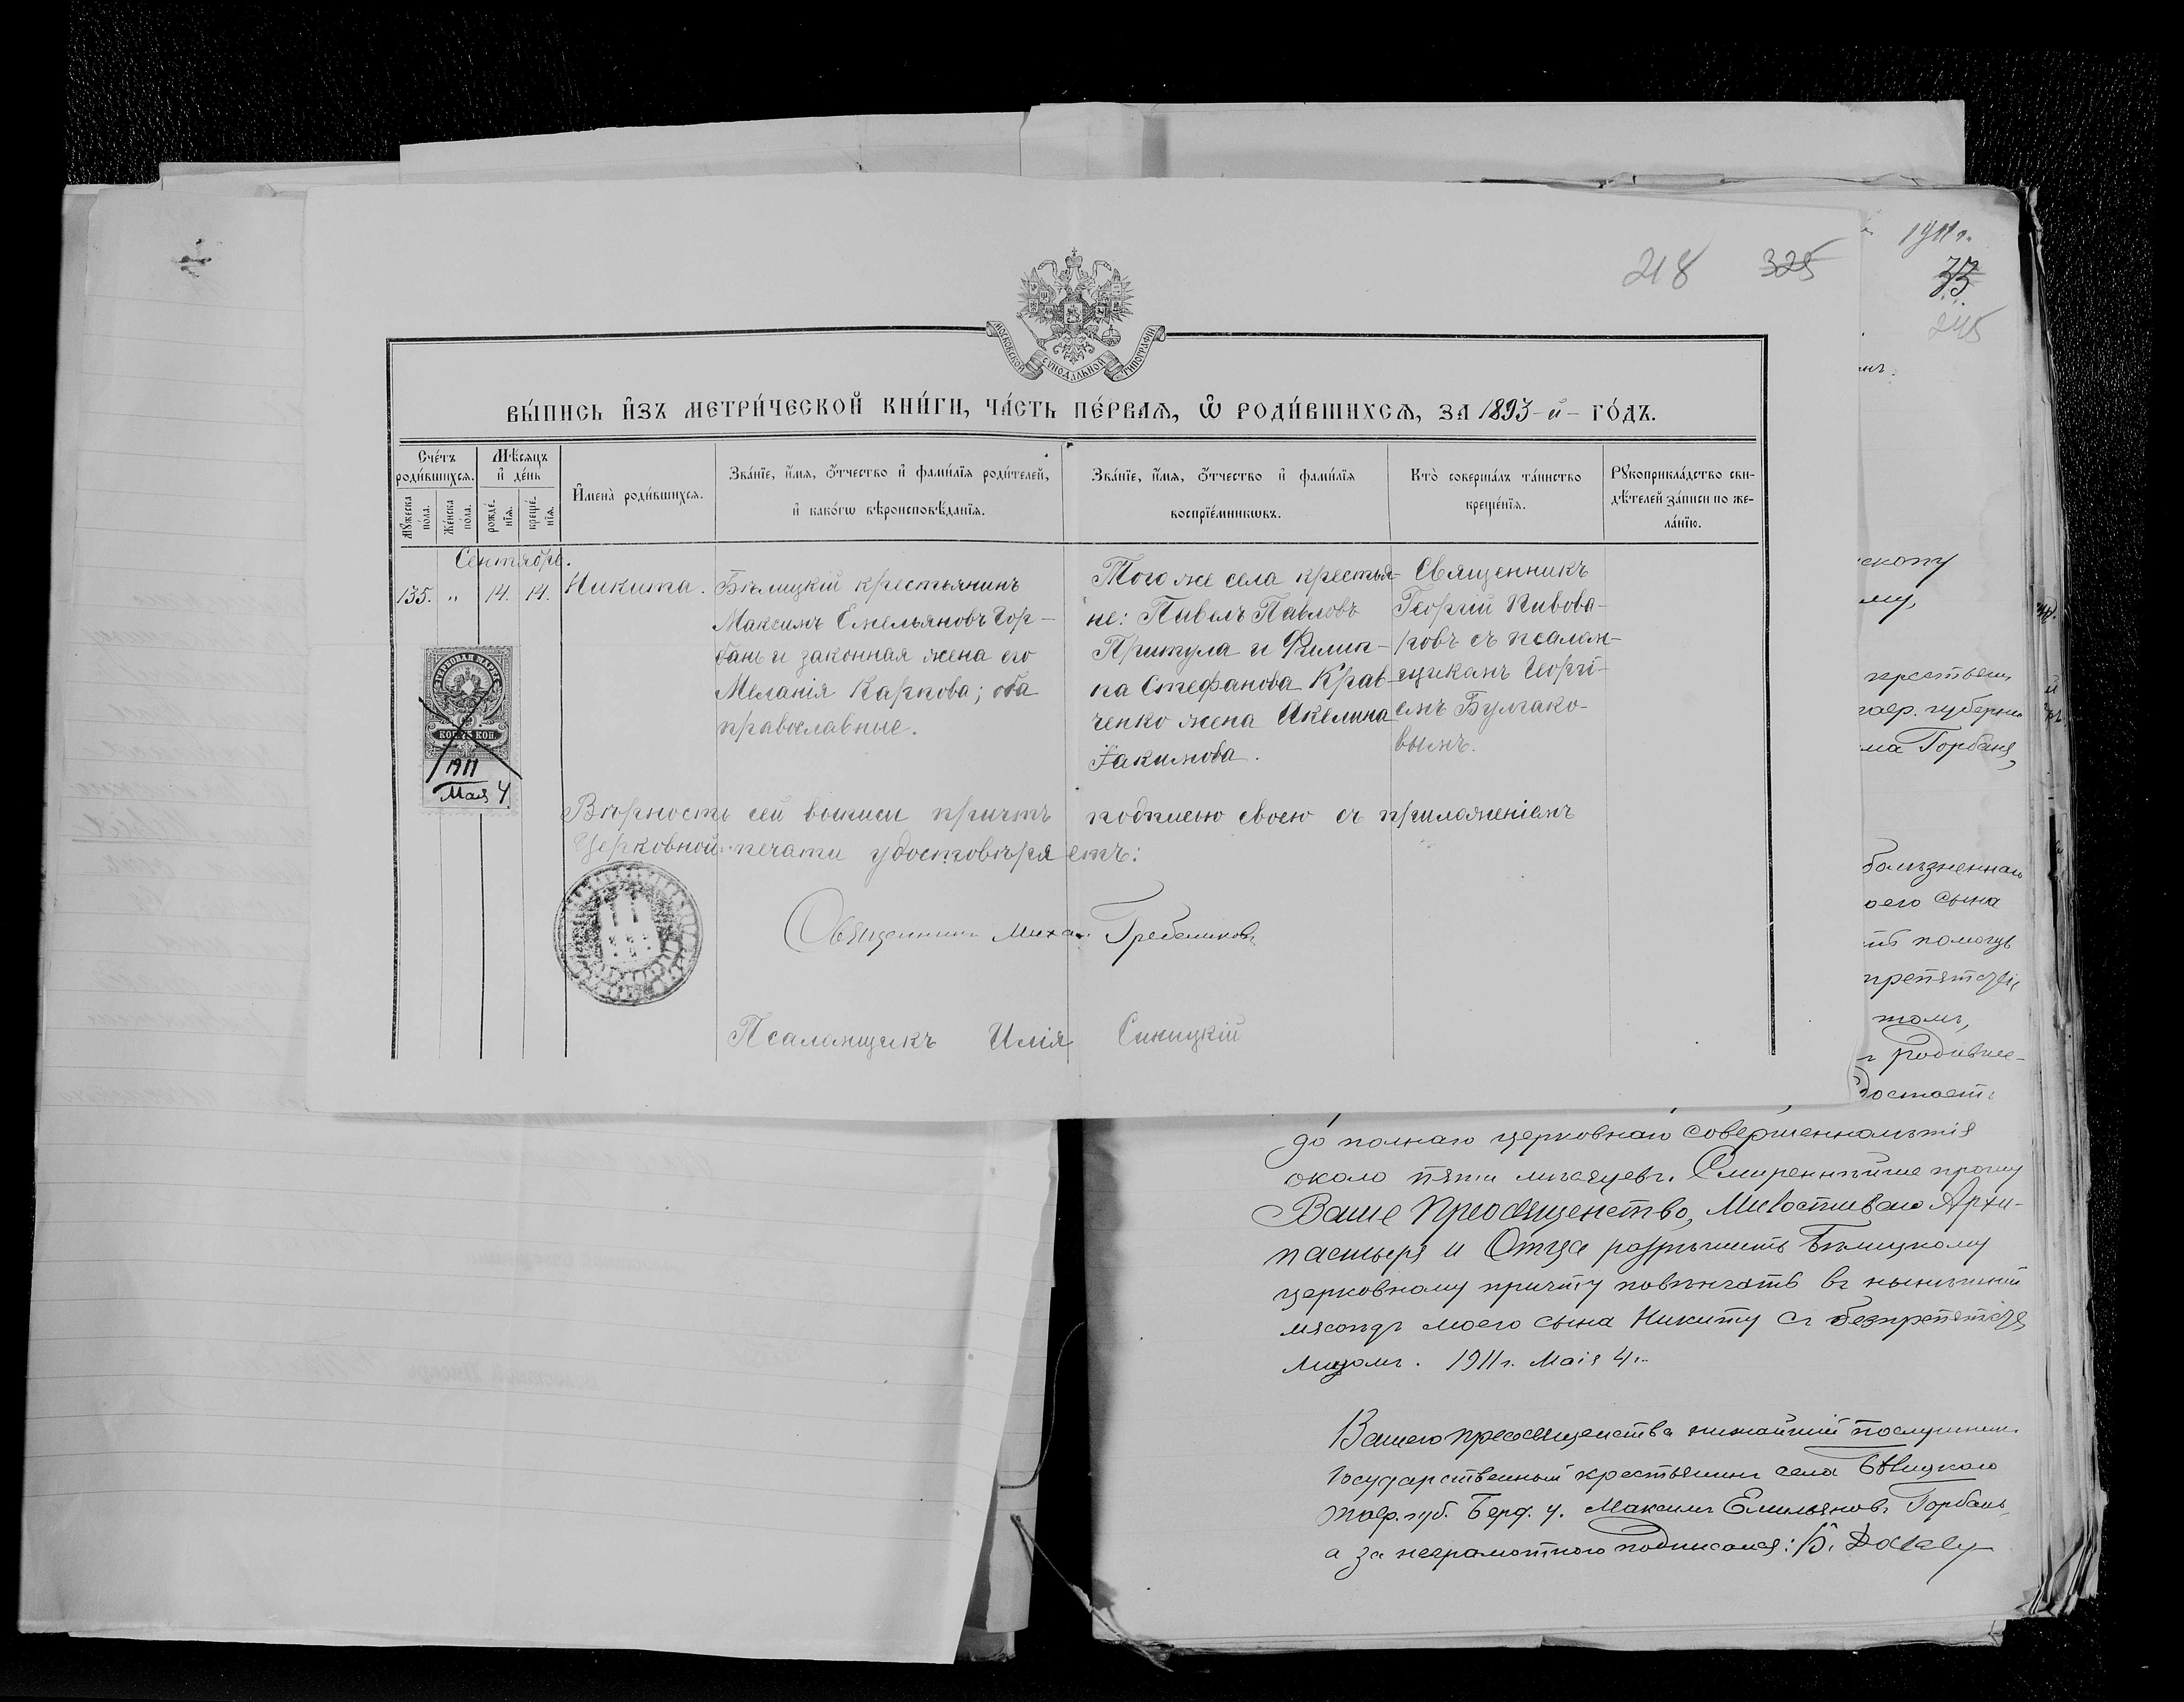 218 325
МОСКОВСКОЙ СѴНОДАЛЬНОЙ ТИПОГРАФІИ
ВЫ́ПИСЬ И҆ЗЪ МЕТРИ́ЧЕСКОЙ КНИ́ГИ, ЧА́СТЬ ПЕ́РВАѦ, Ѽ РОДИ́ВШИХСѦ, ЗА 1893-й- ГО́ДЪ.
Сче́тъ роди́вшихсѧ.
Мѣ́сѧцъ и҆ де́нь
Мꙋ́жеска по́ла.
Же́нска по́ла.
рожде́нїѧ.
креще́нїѧ.
И҆мена̀ роди́вшихсѧ.
Зва́нїе, и҆́мѧ, ѻ҆́тчество и҆ фами́лїѧ роди́телей,
и҆ како́гѡ вѣроисповѣ́данїѧ.
Зва́нїе, и҆́мѧ, ѻ҆́тчество и҆ фами́лїѧ
воспрїе́мникѡвъ.
Кто̀ соверша́лъ та́инство
креще́нїѧ.
Рꙋкоприкла́дство сви-
дѣ́телей за́писи по же-
ла́нїю.
Сентябрь.
135. „ 14. 14.
Никита.
Бѣлицкій крестьянинъ
Максимъ Емельяновъ Гор-
бань и законная жена его
Меланія Карпова; оба
православные.
Того же села крестья-
не: Павелъ Павловъ
Притула и Филип-
па Стефанова Крав-
ченко жена Акелина
Іакимова.
Священникъ
Георгій Пивова-
ровъ съ псалом-
щикомъ Георгі-
емъ Булгако-
вымъ.
ГЕРБОВАЯ МАРКА
КОП. 75 КОП.
1911
Мая 4
Вѣрность сей выписи причтъ подписью своею съ приложеніемъ
Церковной печати удостовѣряетъ:
Священникъ Миха. Гребенниковъ
Псаломщикъ Илія Синицкій
1911 г.
33
245
скому
му,
крестьян
тавр. губерніи
ма Горбаня,
болѣзненная
оего сына
помощь
препятствій
томъ,
родивше-
достаетъ
до полнаго церковнаго совершеннолѣтія
около пяти мѣсяцевъ. Смиреннѣйше прошу
Ваше Преосвященство, Милостиваго Архи-
пастыря и Отца разрѣшить Бѣлицкому
церковному причту повѣнчать въ нынѣшній
мясоѣдъ моего сына Никиту съ безпрепятств
лицомъ. 1911 г. Маія 4 г.
Вашего преосвященства нижайшій послушник
Государственный крестьянинъ села Бѣлицкаго
тавр. губ. Берд. у. Максимъ Емильяновъ Горбань,
а за неграмотного подписался: